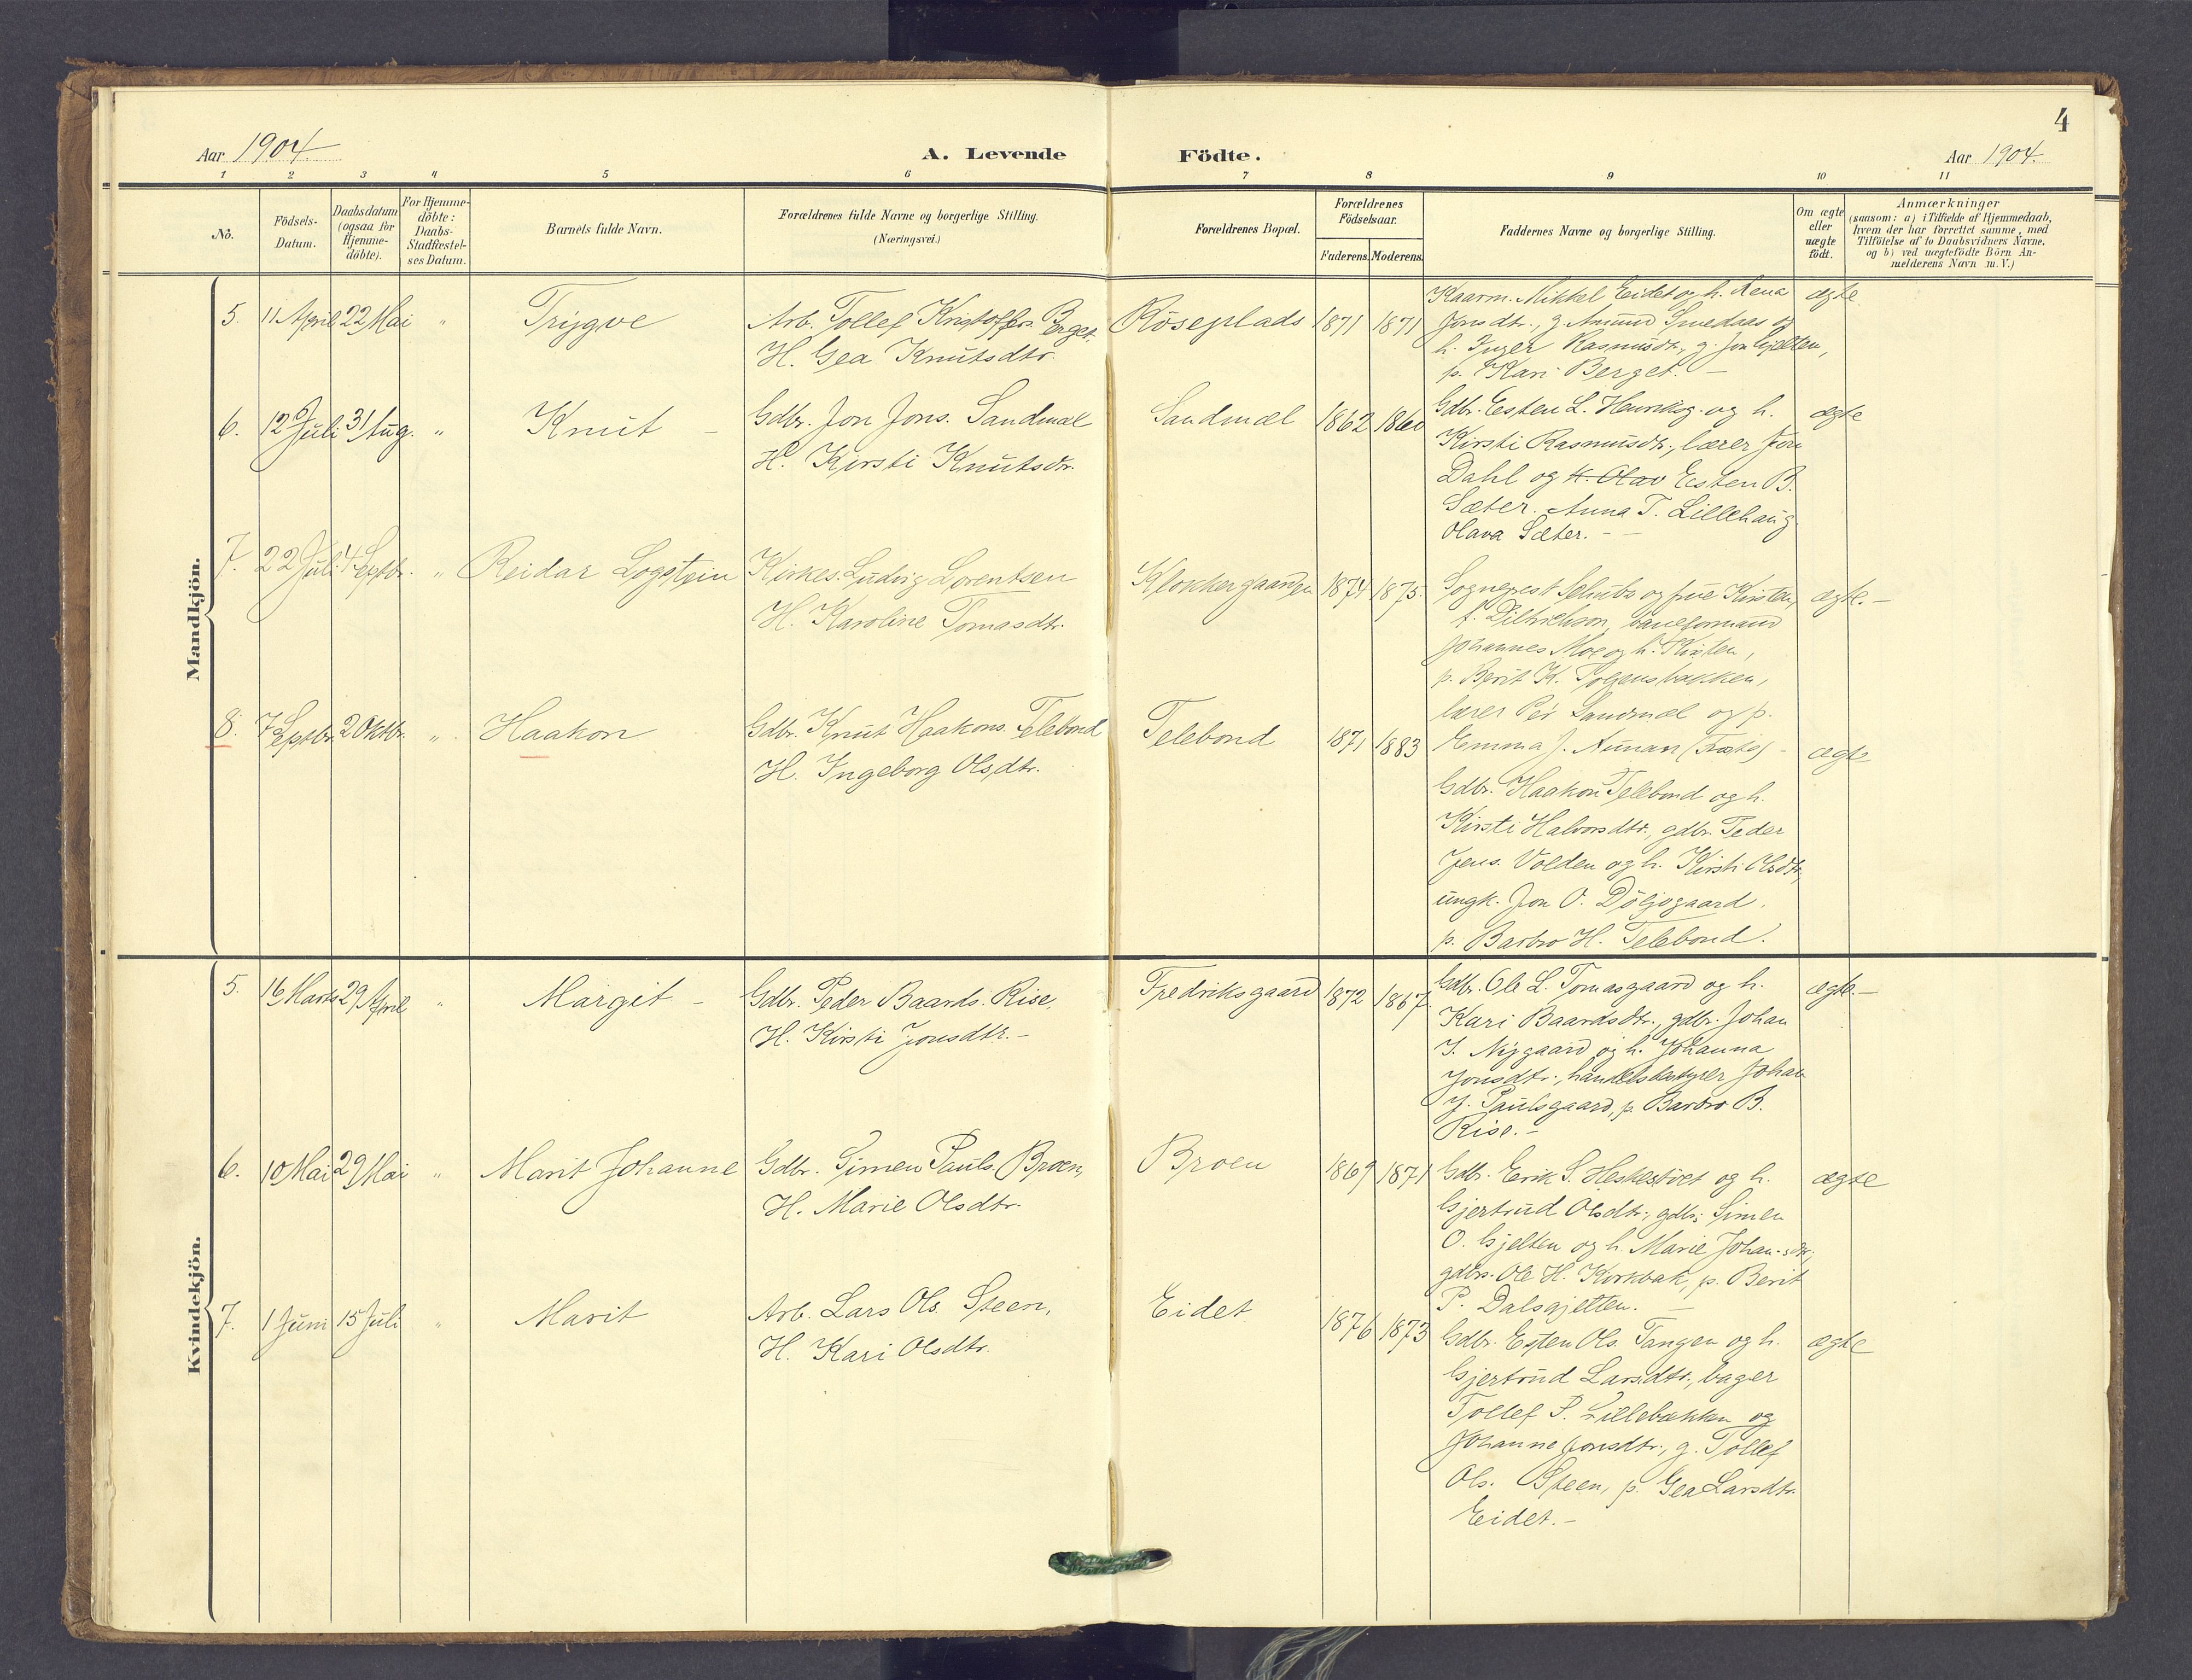 4
Aar 1904.
A. Levende Födte.
Aar 1904.
1 2 3 4 5 6 7 8 9 10 11
No.
Födsels-
Datum.
Daabsdatum
(ogsaa for
Hjemme-
döbte).
For Hjemme-
döbte:
Daabs-
Stadfæstel-
ses Datum.
Barnets fulde Navn.
Forældrenes fulde Navne og borgerlige Stilling.
(Næringsvei.)
Forældrenes Bopæl.
Forældrenes
Födselsaar.
Faderens. Moderens.
Faddernes Navne og borgerlige Stilling.
Om ægte
eller
uægte
födt.
Anmærkninger
(saasom: a) i Tilfælde af Hjemmedaab,
hvem der har forrettet samme, med
Tilföielse af to Daabsvidners Navne,
og b) ved uægtefödte Börn An-
melderens Navn m. V.)
Mandkjön.
5. 11 April 22 Mai " Trygve
Arb. Tollef Kristoffers. Berget.
H. Gea Knutsdtr.
Röseplads 1871 1871
Kaarm. Mikkel Eidet og h. Rena
Jonsdtr., g. Amund Smedaas og
h. Inger Rasmusdtr., g. Jon Gjelten,
p. Kari Berget. -
ægte
6. 12 Juli 31 Aug. " Knut -
Gdbr. Jon Jons. Sandmæl
H. Kirsti Knutsdtr.
Sandmæl 1862 1860
Gdbr. Esten L. Henriksg. og h.
Kirsti Rasmusdtr., lærer Jon
Dahl og H. Olav Esten B.
Sæter. Anna T. Lillehaug
Olava Sæter. -
ægte
7. 22 Juli 4 Septbr. " Reidar Logstein
Kirkes. Ludvig Lorentsen
H. Karoline Tomasdtr.
Klokkergaarden 1874 1875.
Sogneprest Schube og frue Kirsten,
f. Ditrichson, baneformand
Johannes Moe og h. Kirsten,
p. Berit K. Tolgensbakken,
lærer Per Sandmæl og p.
Emma J. Aunan (Træte) -
ægte. -
8. 7 Septbr. 2 Oktbr. " Haakon
Gdbr. Knut Haakons. Telebond
H. Ingeborg Olsdtr.
Telebond 1871 1883
Gdbr. Haakon Telebond og h.
Kirsti Halvorsdtr., gdbr. Peder
Jens. Volden og h. Kirsti Olsdtr,
ungk. Jon O. Döljogaard.
p. Barbro H. Telebond.
ægte
Kvindekjön.
5. 16 Marts 29 April " Margit -
Gdbr. Peder Baards. Rise,
H. Kirsti Jonsdtr. -
Fredriksgaard 1872 1867.
Gdbr. Ole L. Tomasgaard og h.
Kari Baardsdtr., gdbr. Johan
J. Nygaard og h. Johanna
Jonsdtr., handelsbestyrer Johan
J. Paulsgaard, p. Barbro B.
Rise. -
ægte. -
6. 10 Mai 29 Mai " Marit Johanne
Gdbr. Simen Pauls. Broen,
H. Marie Olsdtr.
Broen 1869 1871
Gdbr. Erik S. Heskestöet og h.
Gjertrud Olsdtr., gdbr. Simen
O. Gjelten og h. Marie Johan-sdtr,
gdbrs. Ole H. Kirkbak, p. Berit
P. Dalsgjelten. -
ægte
7. 1 Juni 15 Juli " Marit
Arb. Lars Ols. Steen,
H. Kari Olsdtr.
Eidet 1876 1873
Gdbr. Esten Ols. Tangen og h.
Gjertrud Larsdtr., bager
Tollef P. Lillebækken og
Johanne Jonsdtr., g. Tollef
Ols. Steen, p. Gea Larsdtr.
Eidet. -
ægte